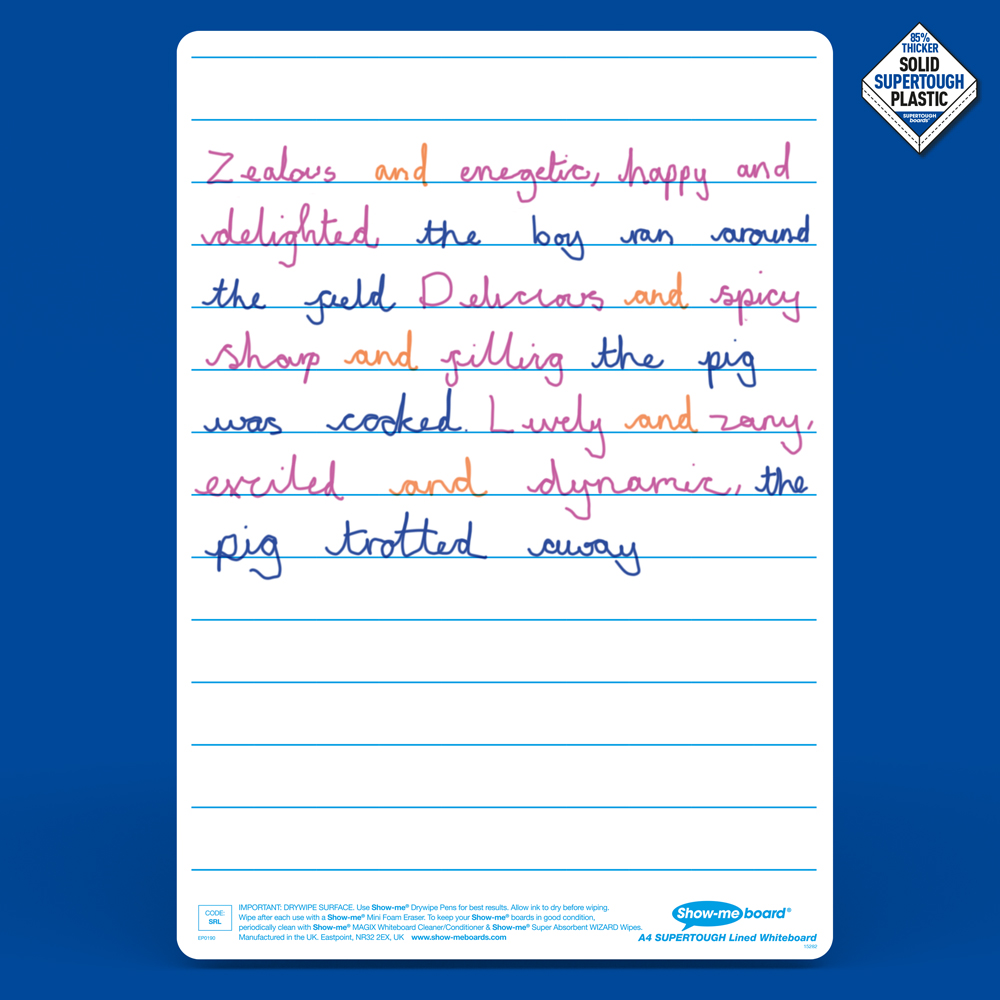 85%
THICKER
SOLID
SUPERTOUGH
PLASTIC
SUPERTOUGH
boards®
Zealous and enegetic, happy and
delighted the boy ran around
the field Delicious and spicy
sharp and filling the pig
was cooked. Lively and zany,
excited and dynamic, the
pig trotted away
CODE:
SRL
EP0190
IMPORTANT: DRYWIPE SURFACE. Use Show-me® Drywipe Pens for best results. Allow ink to dry before wiping.
Wipe after each use with a Show-me® Mini Foam Eraser. To keep your Show-me® boards in good condition,
periodically clean with Show-me® MAGIX Whiteboard Cleaner/Conditioner & Show-me® Super Absorbent WIZARD Wipes.
Manufactured in the UK. Eastpoint, NR32 2EX, UK www.show-meboards.com
Show-me board®
A4 SUPERTOUGH Lined Whiteboard
15292